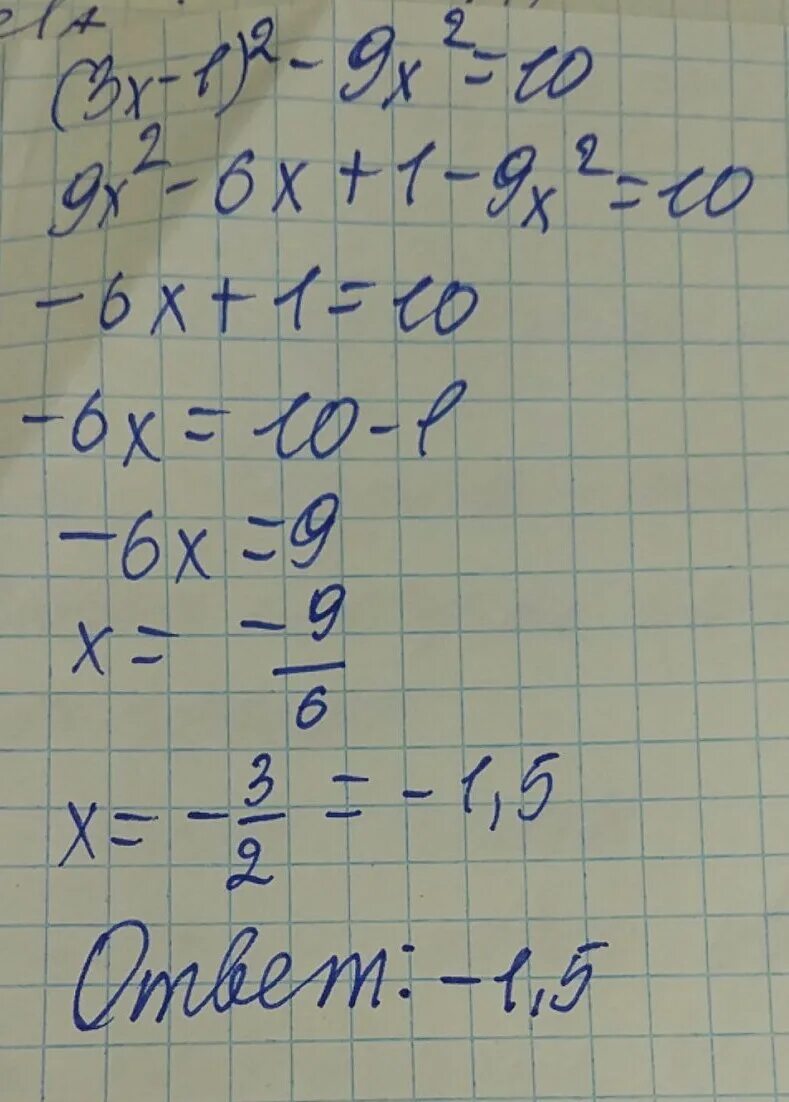 (3x-1)² - 9x² = 10
9x² - 6x + 1 - 9x² = 10
-6x + 1 = 10
-6x = 10 - 1
-6x = 9
x = -9/6
x = -3/2 = -1,5
Ответ: -1,5